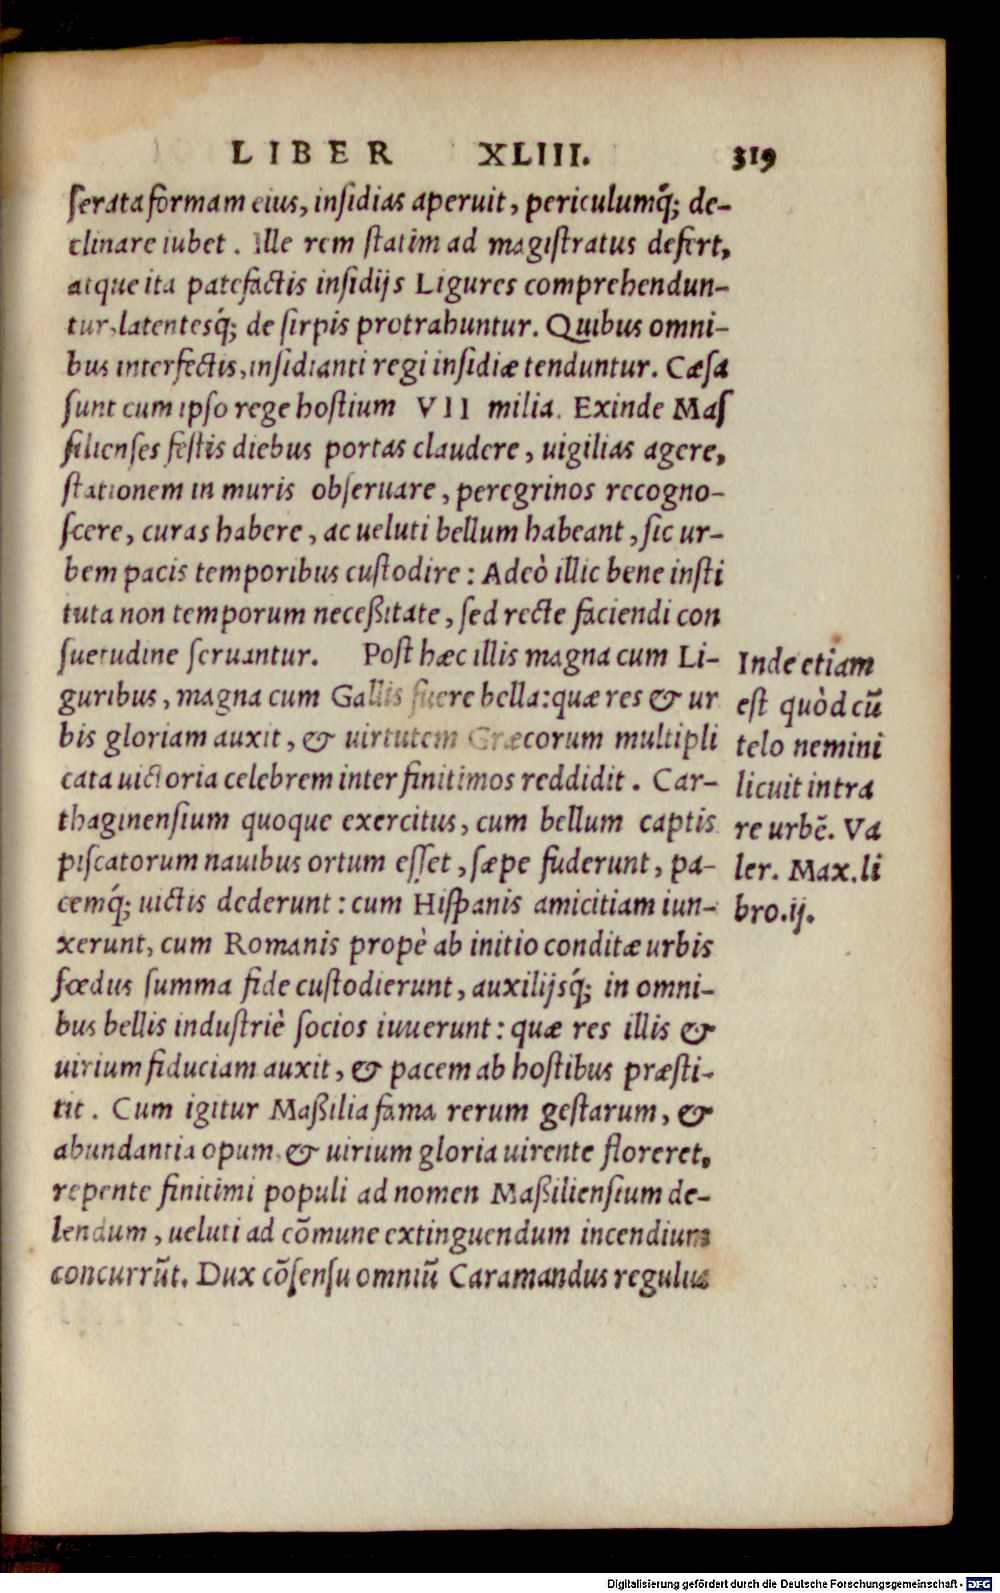 LIBER XLIII. 319
ſerata formam eius, inſidias aperuit, periculumq́; de-
clinare iubet. Ille rem ſtatim ad magiſtratus defert,
atque ita patefactis inſidijs Ligures comprehendun-
tur, latentesq́; de ſirpis protrahuntur. Quibus omni-
bus interfectis, inſidianti regi inſidiæ tenduntur. Cæſa
ſunt cum ipſo rege hoſtium VII milia. Exinde Maſ
ſilienſes feſtis diebus portas claudere, uigilias agere,
ſtationem in muris obſeruare, peregrinos recogno-
ſcere, curas habere, ac ueluti bellum habeant, ſic ur-
bem pacis temporibus cuſtodire: Adeò illic bene inſti
tuta non temporum neceßitate, ſed recte faciendi con
ſuetudine ſeruantur. Poſt hæc illis magna cum Li-
guribus, magna cum Gallis fuere bella: quæ res & ur
bis gloriam auxit, & uirtutem Græcorum multipli
cata uictoria celebrem inter finitimos reddidit. Car-
thaginenſium quoque exercitus, cum bellum captis
piſcatorum nauibus ortum eſſet, ſæpe fuderunt, pa-
cemq́; uictis dederunt: cum Hiſpanis amicitiam iun-
xerunt, cum Romanis propè ab initio conditæ urbis
fœdus ſumma fide cuſtodierunt, auxilijsq́; in omni-
bus bellis induſtriè ſocios iuuerunt: quæ res illis &
uirium fiduciam auxit, & pacem ab hoſtibus præſti-
tit. Cum igitur Maßilia fama rerum geſtarum, &
abundantia opum, & uirium gloria uirente floreret,
repente finitimi populi ad nomen Maßilienſium de-
lendum, ueluti ad cōmune extinguendum incendium
concurrūt. Dux cōſenſu omniū Caramandus regulus
Inde etiam
eſt quòd cū
telo nemini
licuit intra
re urbē. Va
ler. Max. li
bro. ij.
Digitalisierung gefördert durch die Deutsche Forschungsgemeinschaft - DFG